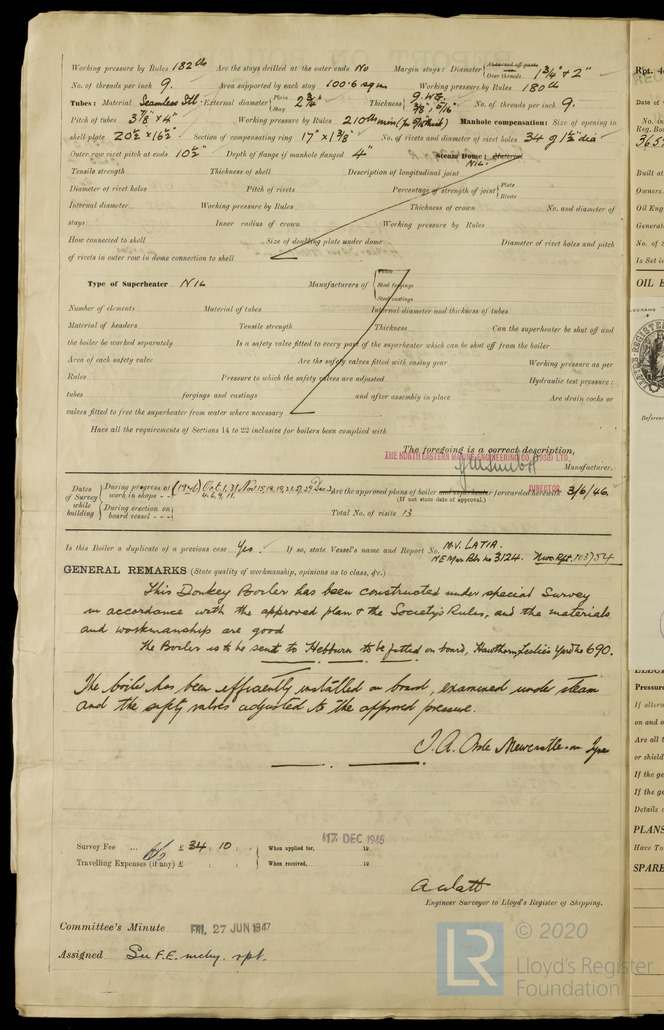 Working pressure by Rules 182 lb Are the stays drilled at the outer ends No Margin stays: Diameter { At turned off part, or Over threads 1 3/4" & 2"
No. of threads per inch 9. Area supported by each stay 100.6 sq ins Working pressure by Rules 180 lb
Tubes: Material Seamless Stl. External diameter { Plain Stay 2 3/4" Thickness { 9. W.G. 3/8", 5/16" No. of threads per inch 9.
Pitch of tubes 3 7/8" x 4" Working pressure by Rules 210 lb min Manhole compensation: Size of opening in
shell plate 20 1/2" x 16 1/2" Section of compensating ring 17" x 1 3/8" No. of rivets and diameter of rivet holes 34 of 1 1/2" dia
Outer row rivet pitch at ends 10 1/2" Depth of flange if manhole flanged 4" Steam Dome: Material NIL.
Tensile strength Thickness of shell Description of longitudinal joint
Diameter of rivet holes Pitch of rivets Percentage of strength of joint { Plate Rivets
Internal diameter Working pressure by Rules Thickness of crown No. and diameter of
stays Inner radius of crown Working pressure by Rules
How connected to shell Size of doubling plate under dome Diameter of rivet holes and pitch
of rivets in outer row in dome connection to shell
Type of Superheater NIL Manufacturers of { Tubes Steel forgings Steel castings
Number of elements Material of tubes Internal diameter and thickness of tubes
Material of headers Tensile strength Thickness Can the superheater be shut off and
the boiler be worked separately Is a safety valve fitted to every part of the superheater which can be shut off from the boiler
Area of each safety valve Are the safety valves fitted with easing gear Working pressure as per
Rules Pressure to which the safety valves are adjusted Hydraulic test pressure:
tubes forgings and castings and after assembly in place Are drain cocks or
valves fitted to free the superheater from water where necessary
Have all the requirements of Sections 14 to 22 inclusive for boilers been complied with
The foregoing is a correct description,
THE NORTH EASTERN MARINE ENGINEERING CO. (1938) LTD.
Manufacturer.
DIRECTOR
Dates of Survey while building { During progress of work in shops - - (1946) Oct. 1, 31, Nov. 15, 18, 19, 21, 27, 29 Dec 2, 4, 6, 9, 11. Are the approved plans of boiler and superheater forwarded herewith 3/6/46.
(If not state date of approval.)
During erection on board vessel - - - Total No. of visits 13
Is this Boiler a duplicate of a previous case Yes. If so, state Vessel's name and Report No. M.V. LATIA.
NE Mar Blr No 3124. Nwc Rpt. 103754
GENERAL REMARKS (State quality of workmanship, opinions as to class, &c.)
This Donkey Boiler has been constructed under special Survey
in accordance with the approved plan & the Society's Rules, and the materials
and workmanship are good
The Boiler is to be sent to Hebburn to be fitted on board, Hawthorn Leslie's Yard No 690.
The boiler has been efficiently installed on board, examined under steam
and the safety valves adjusted to the approved pressure.
J. A. Newcastle-on-Tyne
Survey Fee ... £ 34 : 10 : When applied for, 17 DEC 1946 19
Travelling Expenses (if any) £ : : When received, 19
A Watt
Engineer Surveyor to Lloyd's Register of Shipping.
Committee's Minute FRI. 27 JUN 1947
Assigned See F.E. mchy. rpt.
LR © 2020
Lloyd's Register
Foundation
Rpt. 4
Date of
No. in
Reg. Boo
365
Built at
Owners
Oil Eng
Generat
No. of S
Is Set is
OIL E
Referenc
Pressur
If altern
on and o
Are all t
or shield
If the ge
If the ge
Details o
PLANS
Have To
SPARE